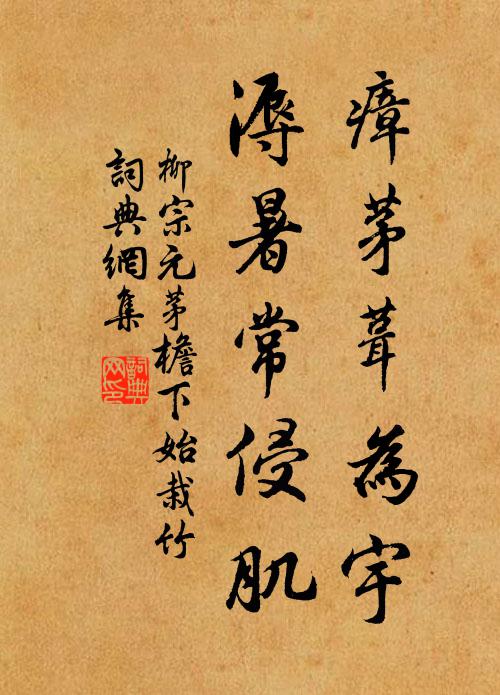 瘴茅葺為宇
溽暑常侵肌
柳宗元茅檐下始栽竹
詞典網集
詞典
网印